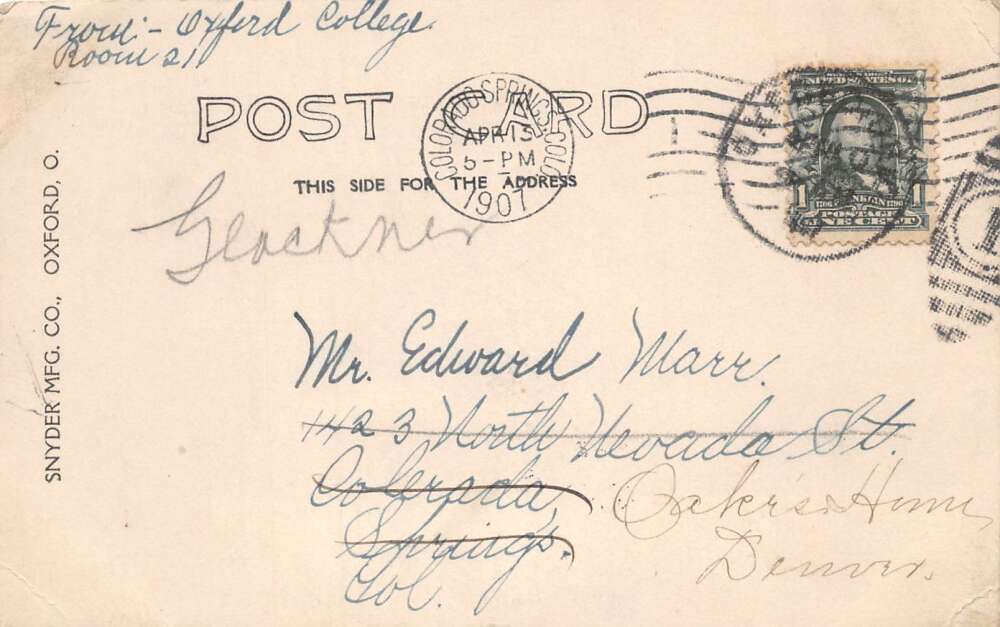 From:- Oxford College.
Room 21
POST CARD
COLORADO SPRINGS, COLO.
APR 13
5-PM
1907
THIS SIDE FOR THE ADDRESS
UNITED STATES OF
1
FRANKLIN
POSTAGE
ONE CENT
1
Glockner
SNYDER MFG. CO., OXFORD, O.
Mr. Edward Marr.
1423 North Nevada St.
Colerada
Springs.
Col.
Oakes Home
Denver.